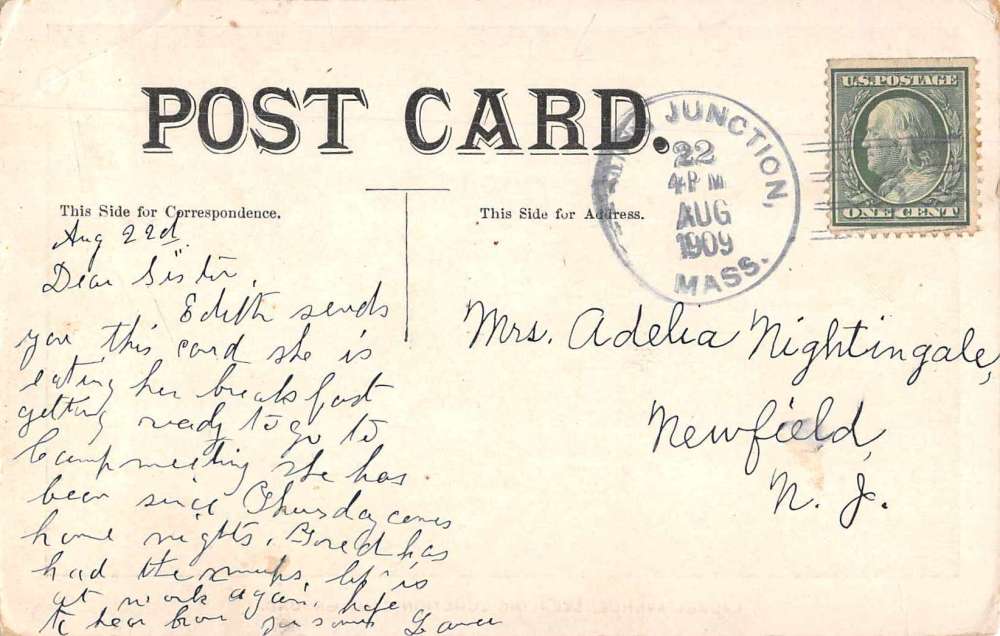 POST CARD.
This Side for Correspondence.
Aug 22d.
Dear Sister,
Edith sends
you this card she is
eating her breakfast
getting ready to go to
Campmeeting she has
been since Thursday comes
home nights. has
had the mumps, is
at work again. hope
to hear from soon
This Side for Address.
JUNCTION,
22
4 PM
AUG
1909
MASS.
U.S. POSTAGE
ONE CENT
Mrs. Adelia Nightingale,
Newfield,
N. J.